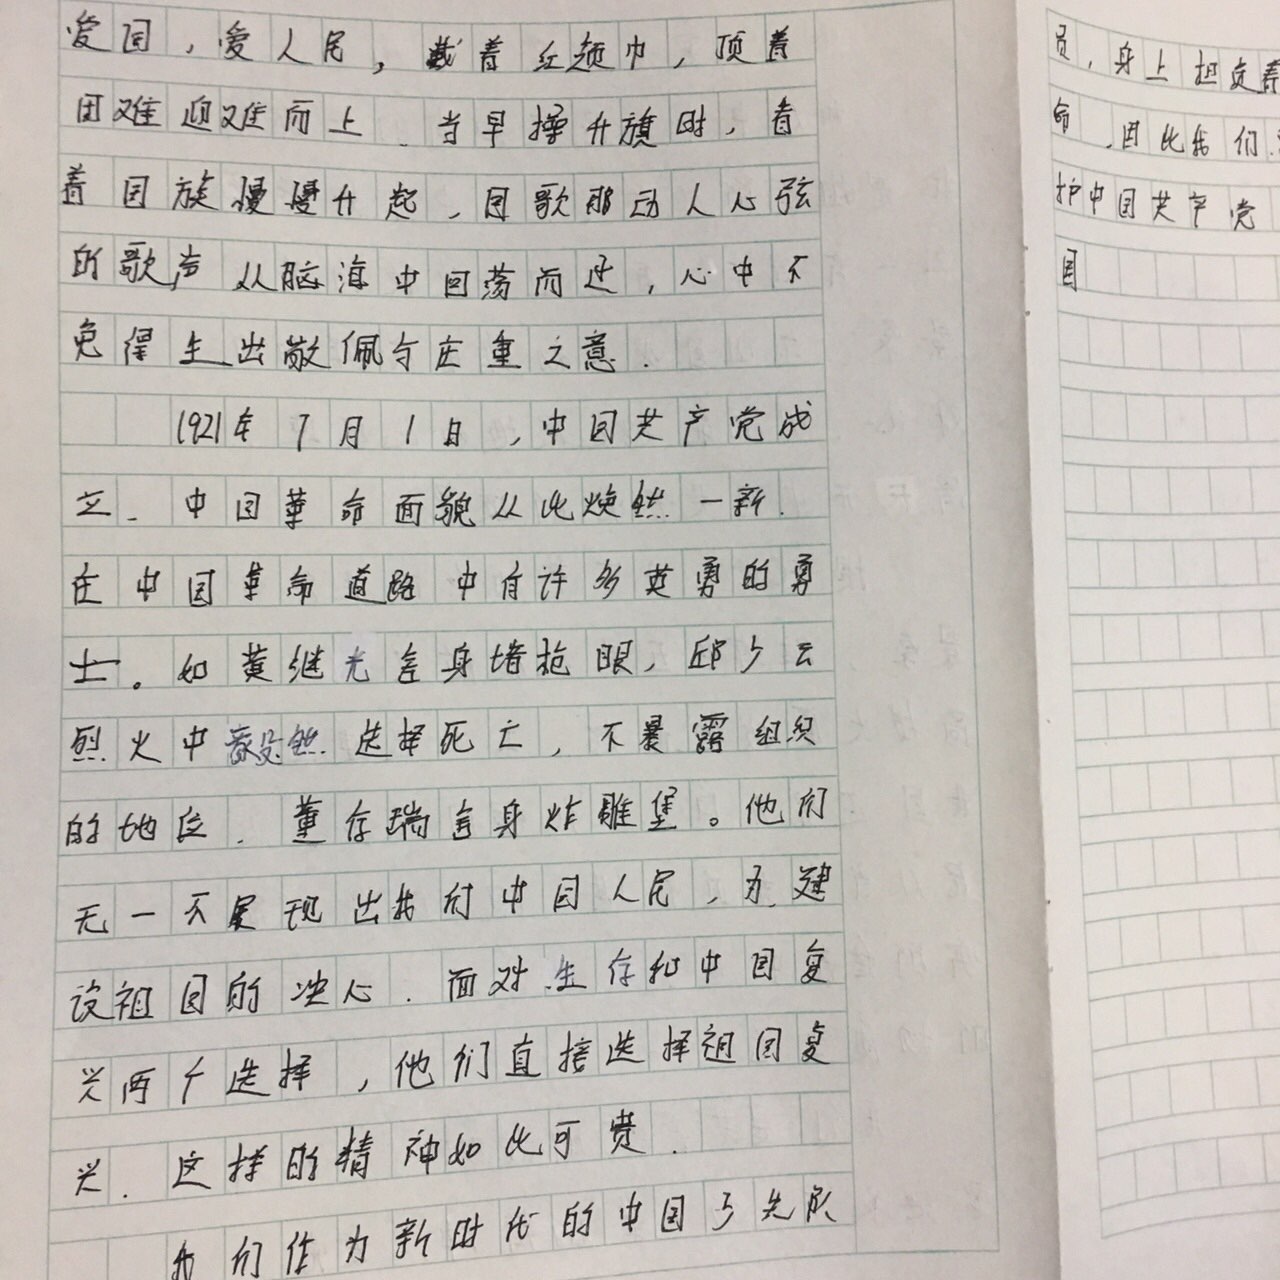 爱国，爱人民，戴着红领巾，顶着
困难迎难而上．当早操升旗时，看
着国旗慢慢升起，国歌那动人心弦
的歌声从脑海中回荡而逝，心中不
免得生出敬佩与庄重之意．
1921年7月1日，中国共产党成
立．中国革命面貌从此焕然一新．
在中国革命道路中有许多英勇的勇
士。如黄继光舍身堵枪眼，邱少云
烈火中毅然选择死亡，不暴露组织
的地位．董存瑞舍身炸雕堡。他们
无一不展现出我们中国人民，为建
设祖国的决心．面对生存和中国复
兴两个选择，他们直接选择祖国复
兴．这样的精神如此可贵．
我们作为新时代的中国少先队
员，身上担负着
命．因此我们
护中国共产党
国